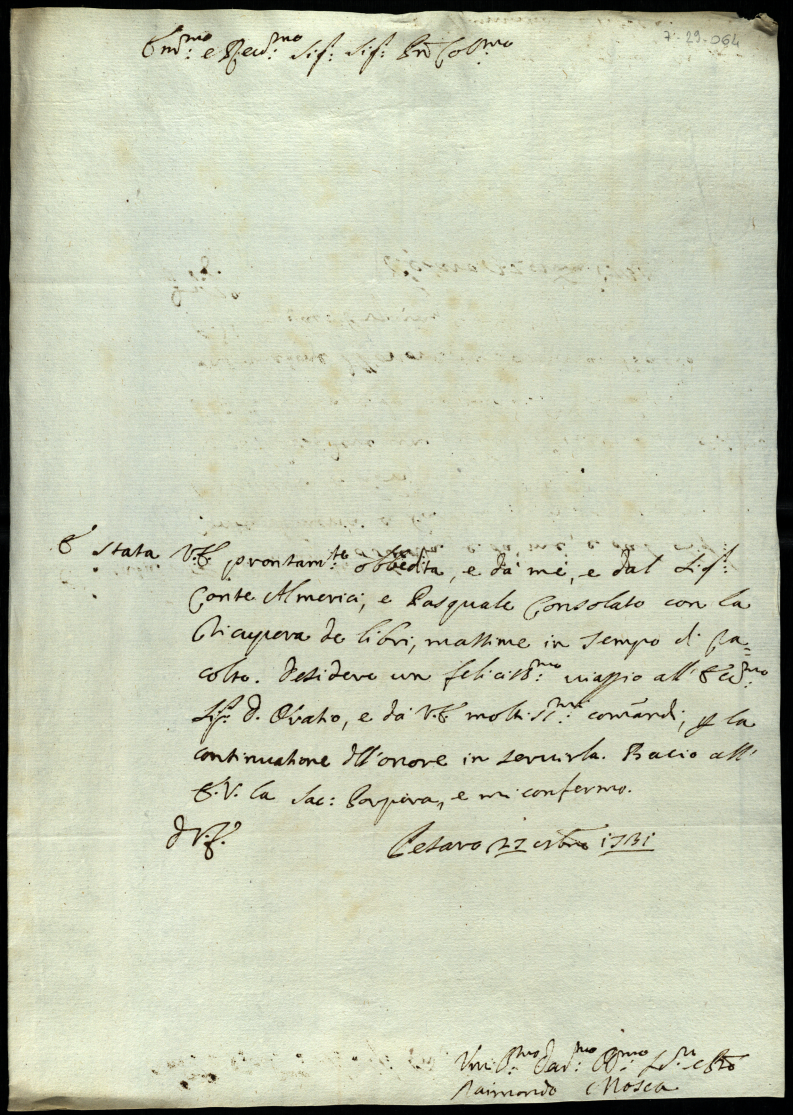 7-29-064
Em:mo e Rev:mo Sig: Sig: Prñ Col:mo
È stata V.E. prontam:te obbedita, e dà mè, e dal Sig:
Conte Almerici, e Pasquale Consolato con la
Ricupera de libri, massime in tempo di Ra=
colta. Desidero un feliciss:mo viaggio all' Ecc:mo
Sig: D. Oratio, e dà V.E. moltiss:mi comãdi, p la
continuatione dell'onore in servirla. Bacio all'
E.V. la Sac: Porpora, e mi confermo.
d V.E.
Pesaro 27 1731
Um:mo Dev:mo Obb:mo
Raimondo Mosca